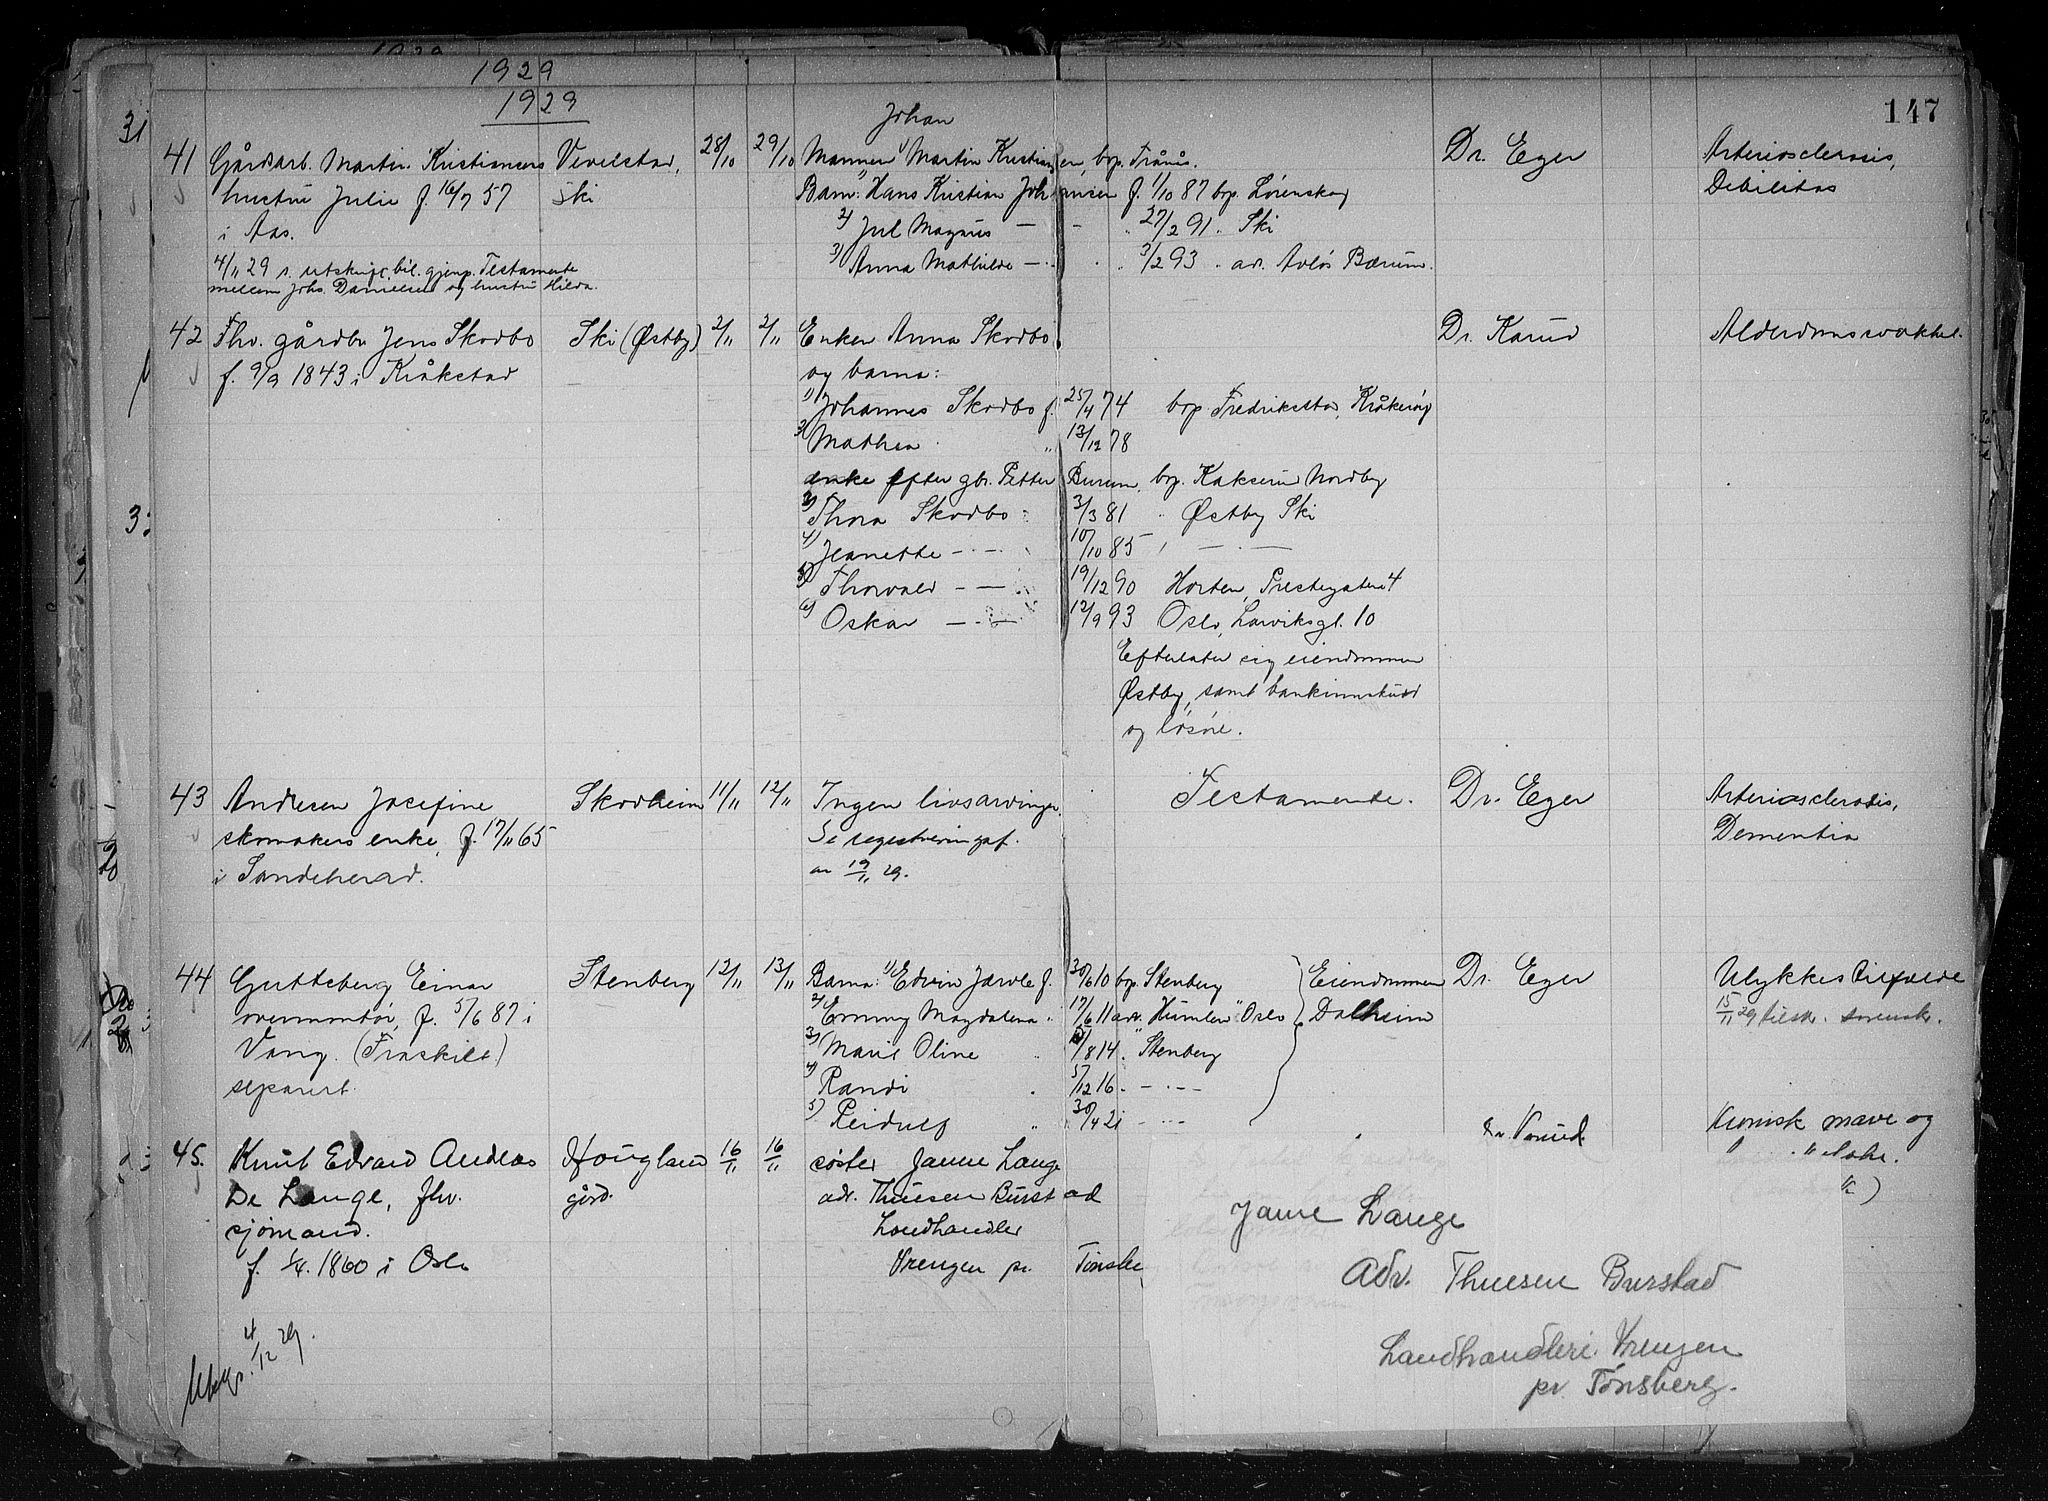 1929
1929
147
41 Gårdsarb. Martin Kristiansens Vevelstad, 28/10 29/10 Mannen Johan Martin Kristiansen, bop. Trånås. Dr. Eger Arteriosclerosis,
hustru Julie f. 16/7 57 Ski Barn: Hans Kristian Johansen f. 1/10 87 bop. Lørenskog Debilitas
i Aas. 2) Jul Magnus — - „ 27/2 91 „ Ski
3) Anna Mathilde — „ 3/2 93 „ adr. Avløs Bærum.
4/11 29 s. utskrift bil. gjenp. Testamente
mellem Johs. Danielsen og hustru Hilda.
42 Fhv. gårdbr. Jens Skodbo Ski (Østby) 2/11 2/11 Enken Anna Skodbo Dr. Karud Alderdomssvakhet.
f. 9/9 1843 i Kråkstad og barna:
1) Johannes Skodbo f. 25/4 74 bop. Fredrikstad, Kråkerøy
2) Mathea „ 13/12 78
enke efter gbr. Petter Burum, bop. Kaksrud Nordby
3) Thora Skodbo 3/3 81 „ Østby Ski
4) Jeanette — - — 10/10 85 „ — - —
5) Thorvald — — 19/12 90 Horten, Prestegaten 4
6) Oskar — - — 12/9 93 Oslo, Larviksgt. 10
Efterlater sig eiendommen
Østby, samt bankinnskudd
og løsøre.
43 Andresen Josefine Skodheim 11/11 12/11 Ingen livsarvinger. Testamente. Dr. Eger Arteriosclerosis,
skomakers enke, f. 17/11 65 Se registreringsf. Dementia
i Sandeherad. av 19/11 29.
44 Gutteberg Einar Stenberg 12/11 13/11 Barna: 1) Edvin Jarle f. 30/6 10 bop. Stenberg Eiendommen Dr. Eger Ulykkestilfælde
overmontør, f. 5/6 87 i 2) Emmy Magdalena „ 17/6 11 adr. "Humlen" Oslo Dalheim 15/11 29 tilskr. sorensk.
Vang. (Fraskilt) 3) Marie Oline „ /8 14 „ Stenberg
separert. 4) Randi „ 5/12 16 - — - —
5) Reidulf „ 30/4 21 - — - —
45. Knut Edvard Andreas Hougland 16/11 16/11 søster Janne Lange Dr. Karud. Kronisk mave og
De Lange, fhv. gård. adr. Thuesen Burstad
sjømand. Landhandler
f. 1/4 1860 i Oslo Vrengen pr. Tønsbe
4/12 29.
Janne Lange
Adr. Thuesen Burstad
Landhandleri Vrengen
pr Tønsberg.